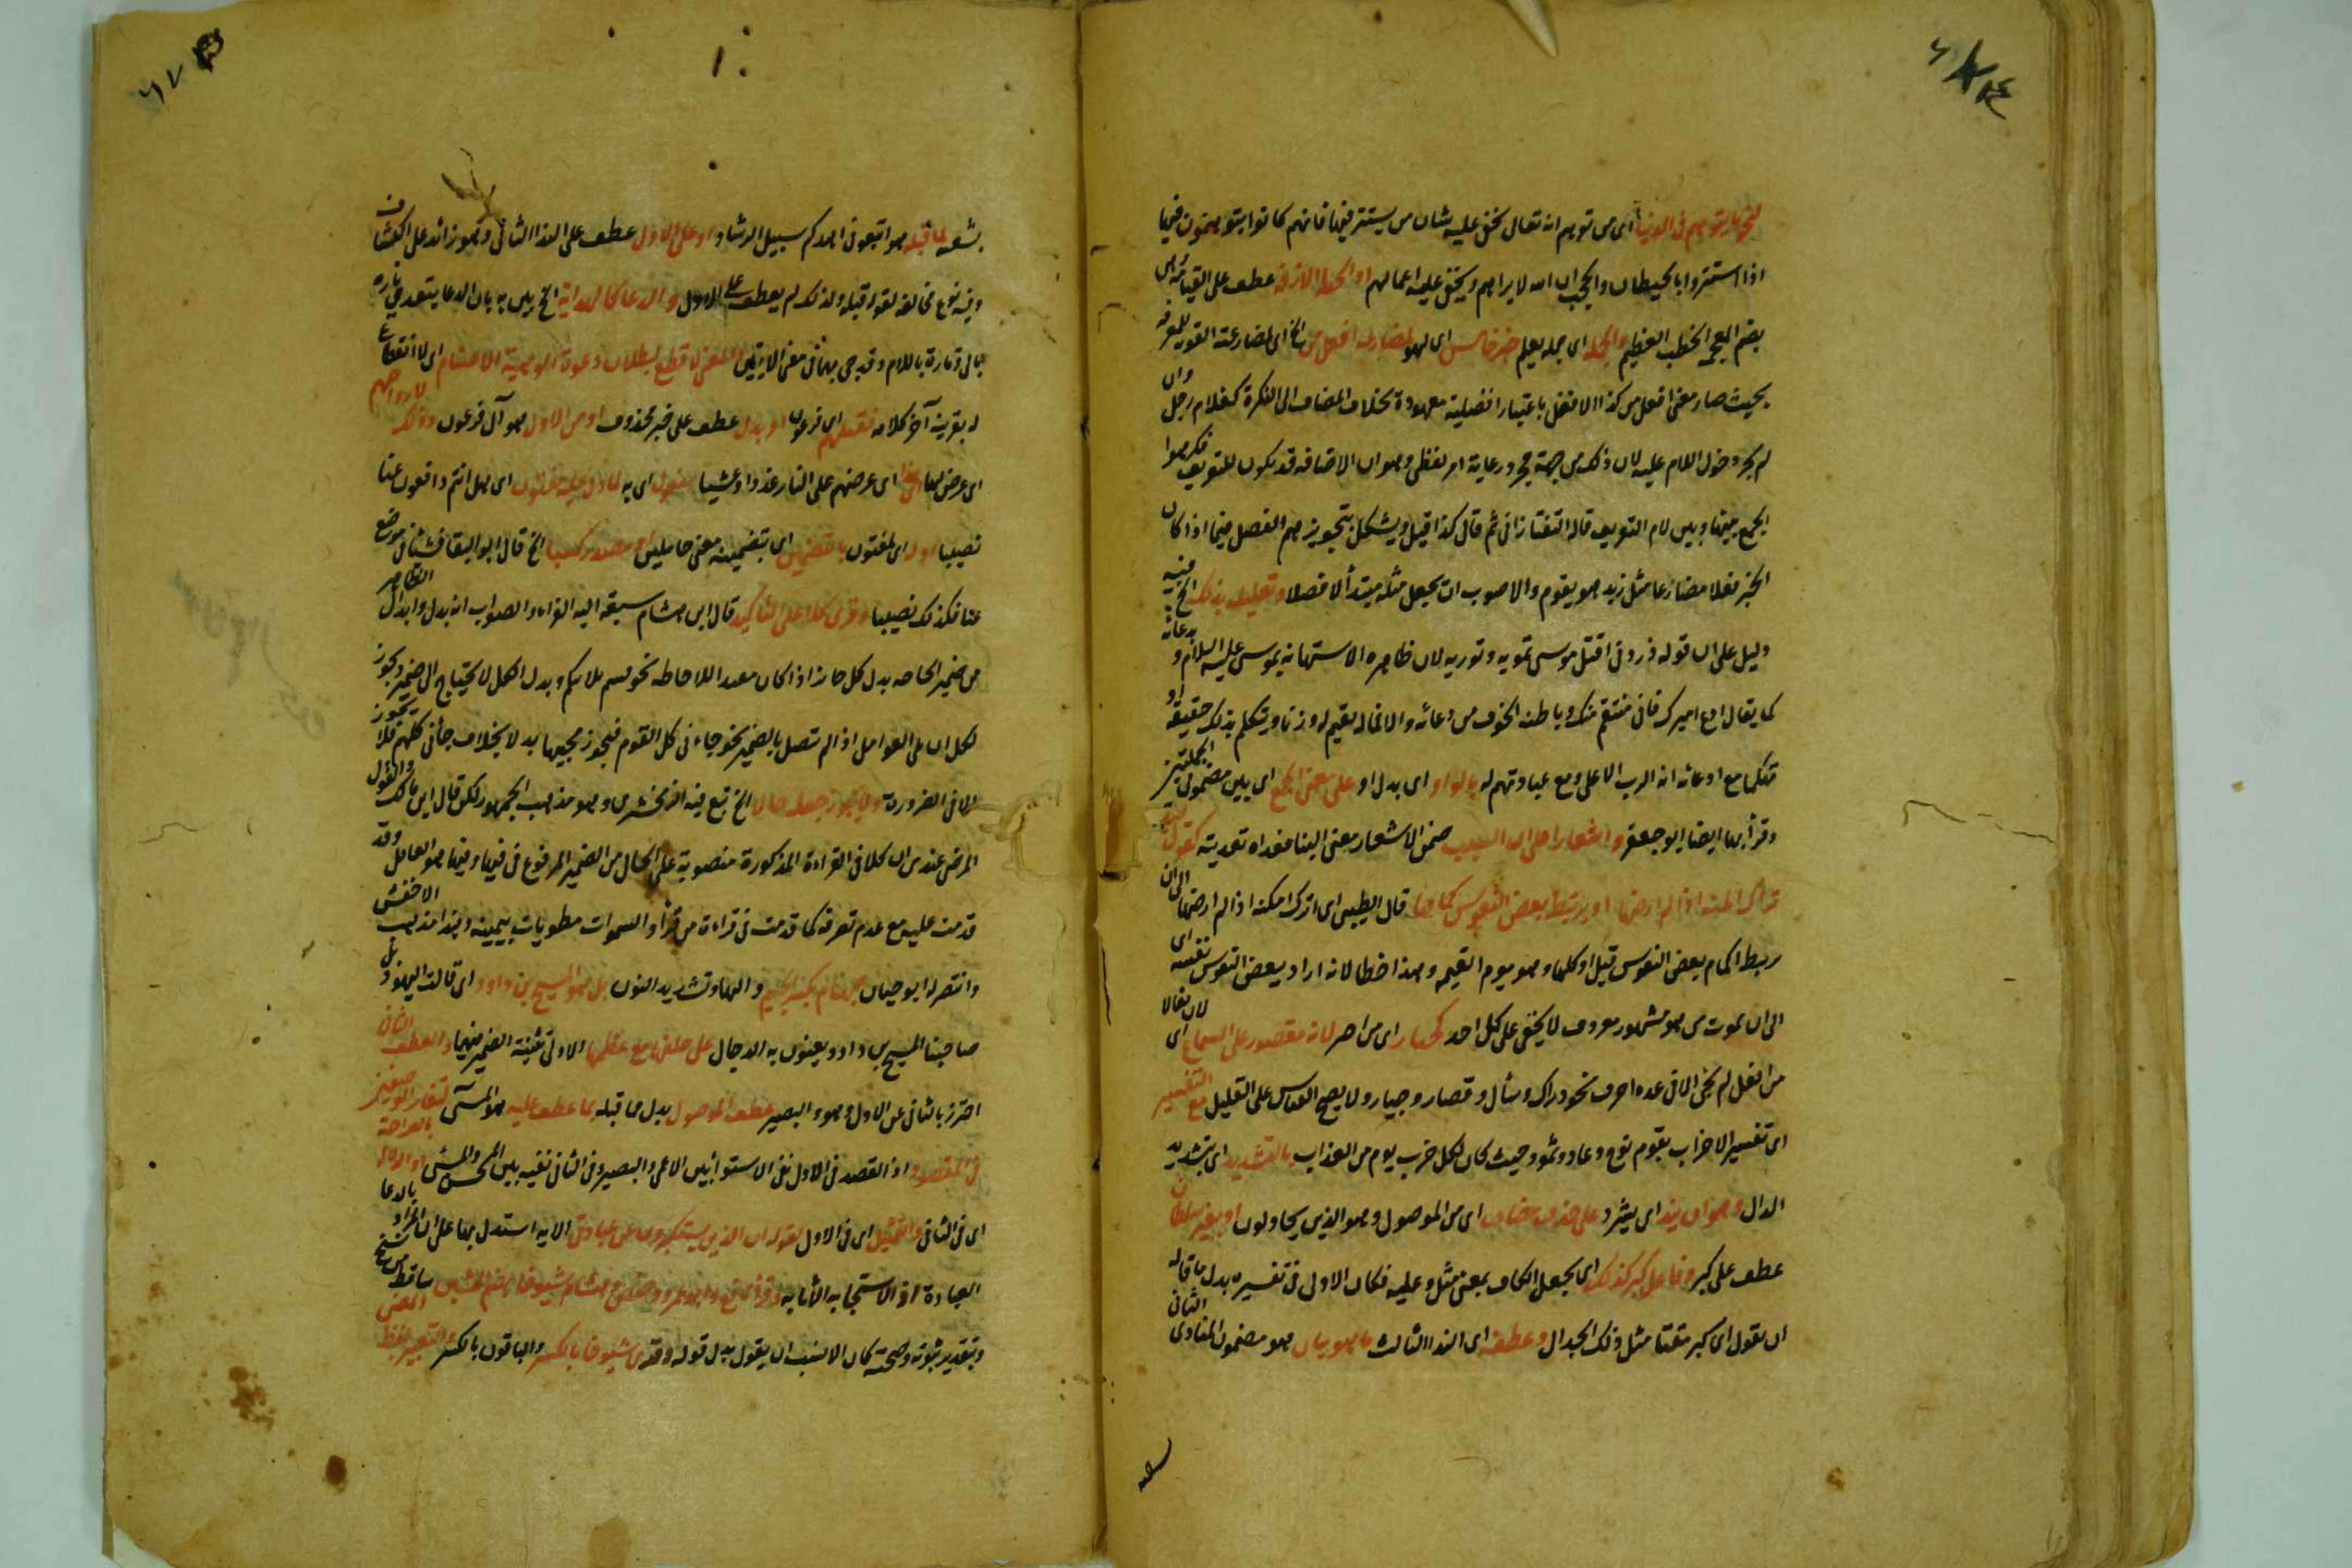 لنحو ما يتوهم في الدنيا اى من توهم انه تعالى يخفى عليه شان من يستتر فيها فانهم كانوا يتوهمون فيها
اذا استتروا بالحيطان والحجب ان الله لا يراهم ويخفى عليه اعمالهم او الخطة الازفة عطف على القيامة اى
بضم المعجمة الخطب العظيم والجملة اى جملة يعلم خبر خامس اى لهو لمضارعة افعل من الخ اى لمضارعته للمعرفة
بحيث صار معنى افعل من كذا الافضل باعتبار افضلية معهودة بخلاف المضاف الى النكرة كغلام رجل وان
لم يجز دخول اللام عليه لان ذلك من جهة مجرد رعاية امر لفظي وهو ان الاضافة قد يكون للتعريف فكرهوا
الجمع بينها وبين لام التعريف قاله التفتازاني ثم قال كذا قيل ويشكل بتجويزهم الفصل فيما اذا كان
الخبر فعلا مضارعا مثل زيد هو يقوم والاصوب ان يجعل مثله مبتدأ لا فصلا وتعليله بذلك الخ فيه
دليل على ان قوله ذروني اقتل موسى تمويه وتورية لان ظاهره الاستهانة بموسى عليه السلام و بدعائه
كما يقال ادع اميرك فاني منتقم منك وباطنه الخوف من دعائه والا فما له يقيم له وزنا ويتكلم بذلك حقيقة او
تهكما مع ادعائه انه الرب الاعلى ومع عبادتهم له بالواو اى بدل او على معنى الجمع اى بين مضمون الجملتين
وقرأ بها ايضا ابو جعفر واشعارا على ان السبب ضمن الاشعار معنى البنا فعداه تعديته كقول لبيد
تراك امكنة اذا لم ارضها او يرتبط بعض النفوس حمامها قال الطيبي اى اترك امكنة اذا لم ارضها الى ان
يربط الحمام بعض النفوس قيل او كلها وهو يوم القيمة وهذا خطا لانه اراد ببعض النفوس نفسه اى
الى ان يموت من هو مشهور معروف لا يخفى على كل احد كجبار اى من اجبر لانه مقصور على السماع اى لان فعالا
من افعل لم يجئ الا في عدة احرف نحو دراك وسأل وقصار وجبار ولا يصح القياس على القليل مع التفسير
اى تفسير الاحزاب بقوم نوح وعاد وثمود حيث كان لكل حزب يوم من العذاب بالتشديد اى بتشديد
الدال وهو ان يند اى يشرد على حذف مضاف اى من الموصول وهو الذين يجادلون او بغير سلطان
عطف على كبر وفاعل كبر كذلك اى بجعل الكاف بمعنى مثل وعليه فكان الاولى في تفسيره بدل ما قاله
ان يقول اى كبر مقتا مثل ذلك الجدال وعطفه اى الندا الثالث ما هو بيان هو مضمون المنادى الثاني
بشعه لما قبله هو اتبعوني اهدكم سبيل الرشاد او على الاول عطف على الندا الثاني وهو زائد على الكشاف
وفيه نوع مخالفة لقوله قبله ولذلك لم يعطف على الاول والدعا كالهداية الخ بين به بان الدعا يتعدى تارة
بالى وتارة باللام وقد جى بهما في معنى الايتين والمعنى لا قطع لبطلان دعوة الوهية الاصنام اى لا انقطاع
له بقرينة آخر كلامه نقتلهم اى فرعون او بدل عطف على خبر محذوف او من الاول هو آل فرعون وذلك لارواحهم
اى عرض لها اى عرضهم على النار غدوا وعشيا مفعول اى به لما دل عليه مغنون اى هل انتم دافعون عنا
نصيبا اول اى لمغنون بالتضمين اى بتضمينه معنى حاملين او مصدر كشيا الخ قال ابو البقا فشيئا في موضع
عنا فكذلك نصيبا وقرئ كلا على التأكيد قال ابن هشام سبقه اليه الفراء والصواب انه بدل وابدال الظاهر
من ضمير الحاضر بدل كل جائز اذا كان مفيد اللاحاطة نحو قمتم ثلاثتكم وبدل الكل لا يحتاج الى ضمير ويجوز
لكل ان على العوامل اذا لم تتصل بالضمير نحو جاءنى كل القوم فيجوز مجيئها بدلا بخلاف جاءنى كلهم فلا يجوز
الا في الضرورة ولا يجوز جعله حالا الخ تبع فيه الزمخشرى وهو مذهب الجمهور لكن قال ابن مالك والقول
المرضى عندى ان كلا في القراءة المذكورة منصوبة على الحال من الضمير المرفوع في فيها وفيها هو العامل وقد
قدمت عليه مع عدم تصرفه كما قدمت في قراءة من قرأ والسموات مطويات بيمينه وهذا مذهب الاخفش
وانتصر له ابو حيان جهنام بكسر الجيم والهاء وتشديد النون بل هو المسيح بن داود اى قالت اليهود بل
صاحبنا المسيح بن داود يعنون به الدجال على خلقها مع عظمها الاولى تثنية الضمير فيهما والعطف الثاني
احترز بالثاني عن الاول وهو والبصير عطف الموصول بدل ما قبله بما عطف عليه هو المسئ لتغاير الوصفين
في المقصود اذ القصد في الاول نفى الاستوا بين الاعمى والبصير وفي الثاني نفيه بين المحسن والمسئ او الدلالة بالصراحة
اى في الثاني والتمثيل اى في الاول لقوله ان الذين يستكبرون عن عبادتي الاية استدل بها على ان المراد بالدعا
العبادة اذ الاستجابة الاثابة وقرأ نافع وابو عمرو وحفص وهشام شيوخا بضم الشين ساقط من نسخ
وبتقدير ثبوته وصحته كان الانسب ان يقول بدل قوله وقرئ شيوخا بالكسر والباقون بالكسر التعبير بلفظ المعنى